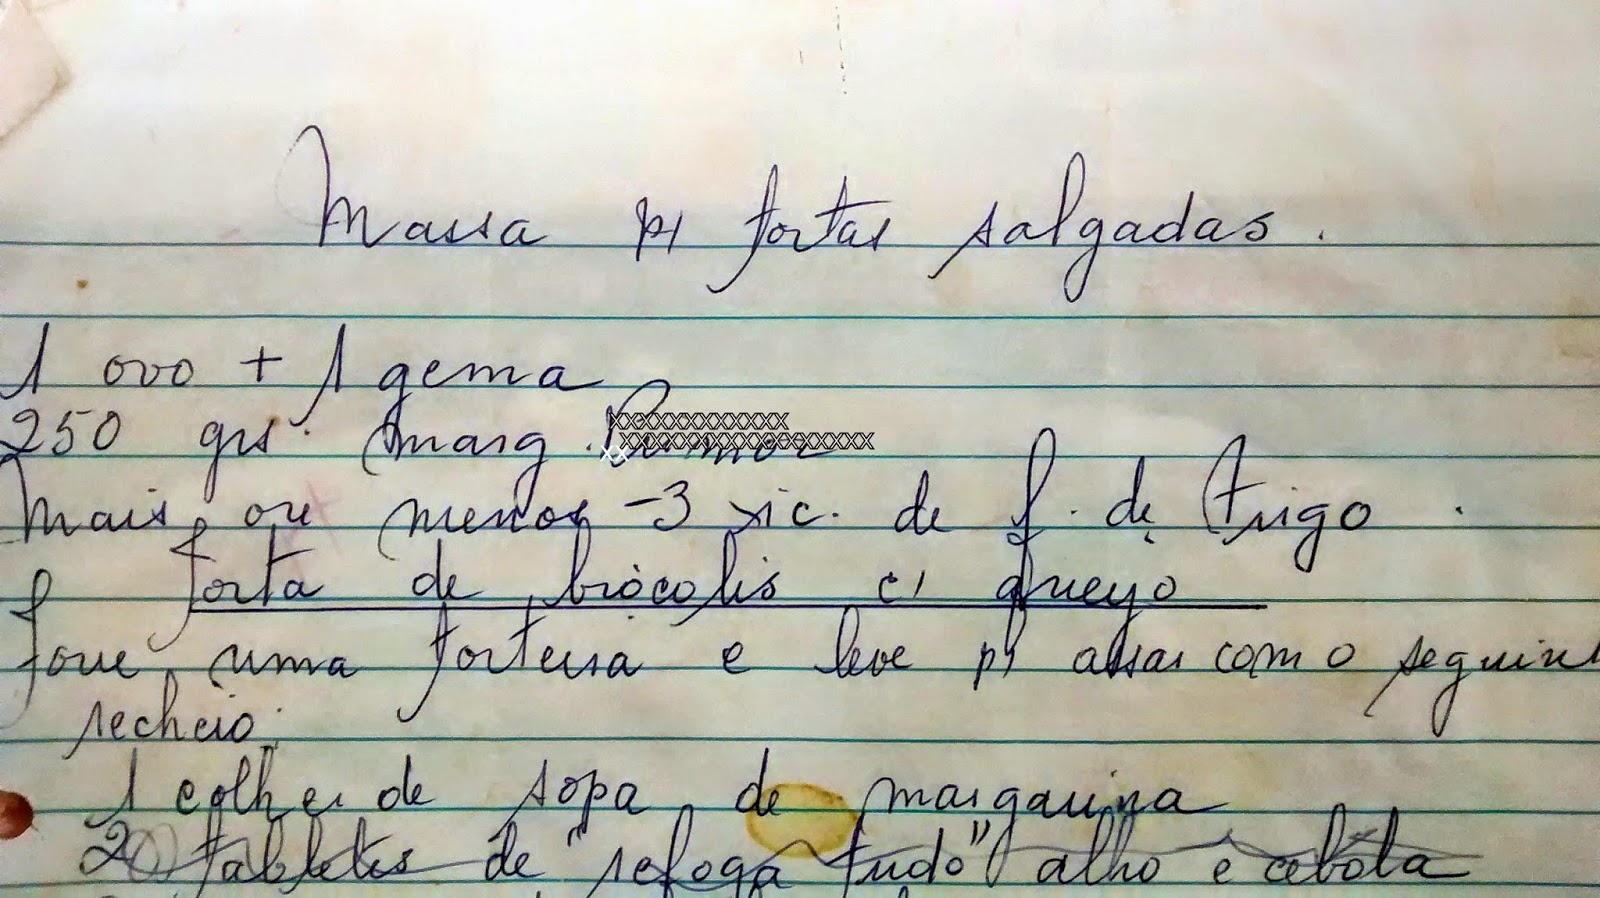 Massa p/ tortas salgadas.
1 ovo + 1 gema
250 grs. marg.
Mais ou menos -3 xic. de f. de trigo.
Torta de brócolis c/ queijo
Forre uma torteira e leve p/ assar com o seguint
recheio:
1 colher de sopa de margarina
2 tabletes de "refoga tudo" alho e cebola